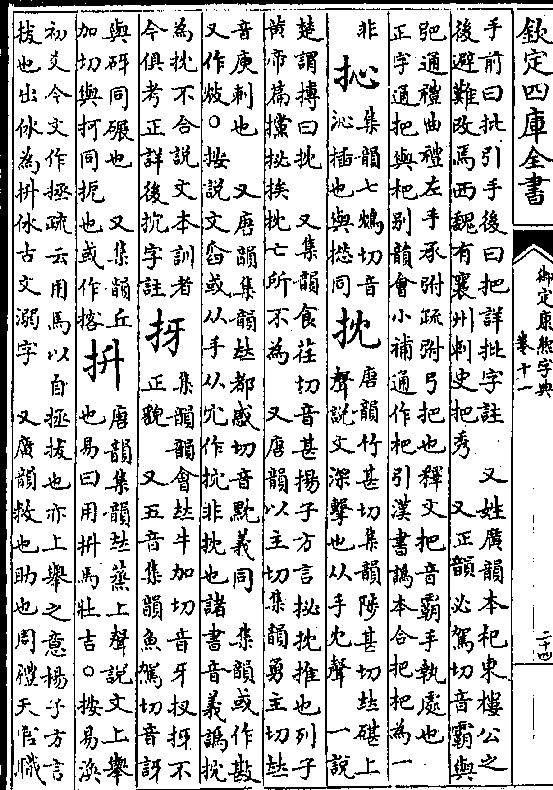 欽定四庫全書
御定康熙字典
卷十一
二十四
手前曰批引手後曰把詳批字註 又姓廣韻本杞東樓公之
後避難改焉西魏有襄州刺史把秀 又正韻必駕切音霸與
弝通禮曲禮左手承弣疏弣弓把也釋文把音霸手執處也
正字通把與杷别韻會小補通作杷引漢書譌本合把杷為一
非 抋 集韻七鴆切音
沁插也與㨣同 抌 唐韻竹甚切集韻陟甚切𠀤碪上
聲說文深擊也从手冘聲 一說
楚謂搏曰抌 又集韻食荏切音甚揚子方言抌推也列子
黃帝篇㩳挨抌亡所不為 又唐韻以主切集韻勇主切𠀤
音庾刺也 又唐韻集韻𠀤都感切音黕義同 集韻或作㪴
又作㪛○按說文舀或从手从冘作抌非抌也諸書音義譌抭
為抌不合說文本訓者
今俱考正詳後抭字註 㧎 集韻韻會𠀤牛加切音牙杈㧎不
正貌 又五音集韻魚駕切音訝
與砑同碾也 又集韻丘
加切與抲同扼也或作揢 抍 唐韻集韻𠀤蒸上聲說文上舉
也易曰用抍馬壯吉○按易渙
初爻今文作拯疏云用馬以自拯拔也亦上舉之意揚子方言
拔也出㲻為抍㲻古文溺字 又廣韻救也助也周禮天官職